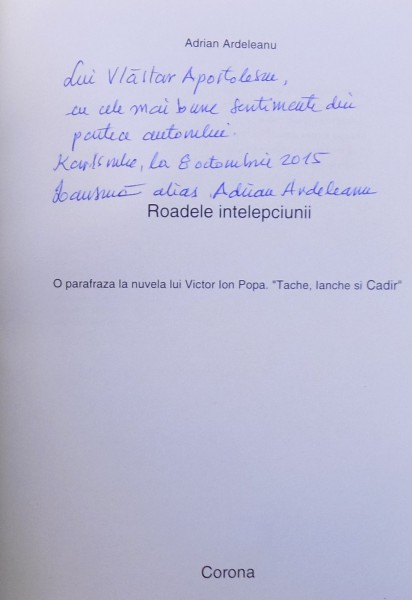 Adrian Ardeleanu
Lui Vlăstar Apostolescu,
cu cele mai bune sentimente din
partea autorului.
Karlsruhe, la 8 octombrie 2015
alias Adrian Ardeleanu
Roadele intelepciunii
O parafraza la nuvela lui Victor Ion Popa. "Tache, Ianche si Cadir"
Corona